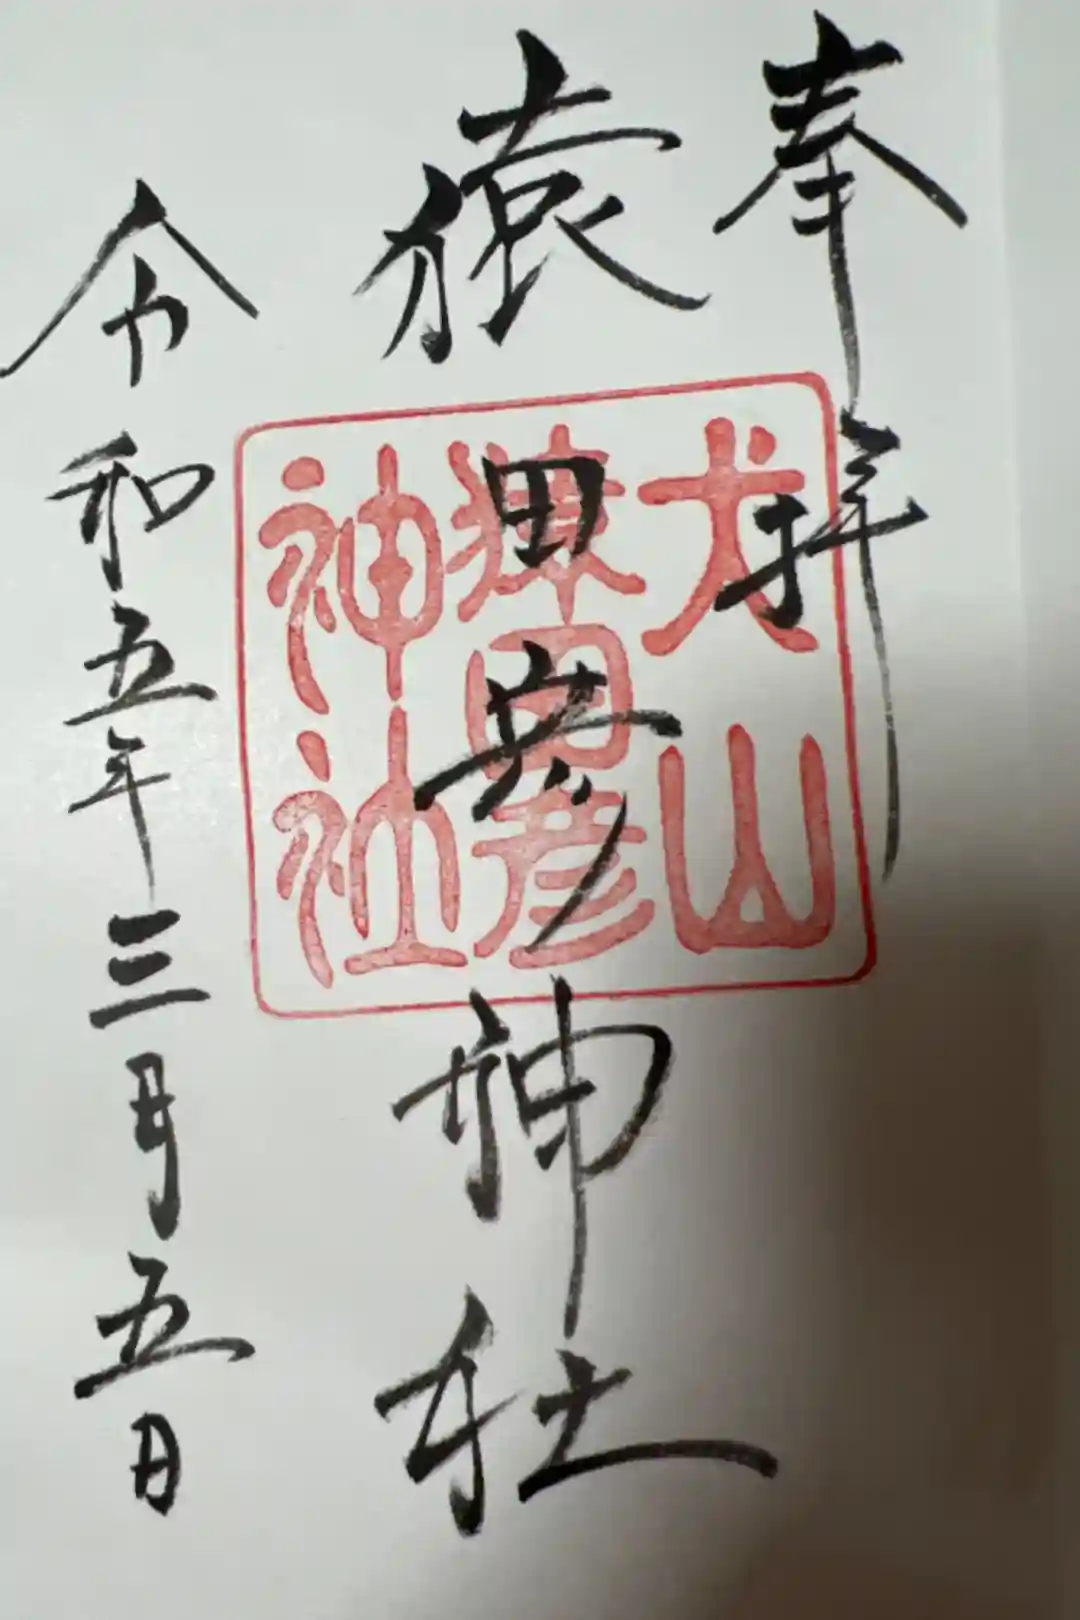 奉拝
猿田彦神社
犬山
猿田彦
神社
令和五年三月五日